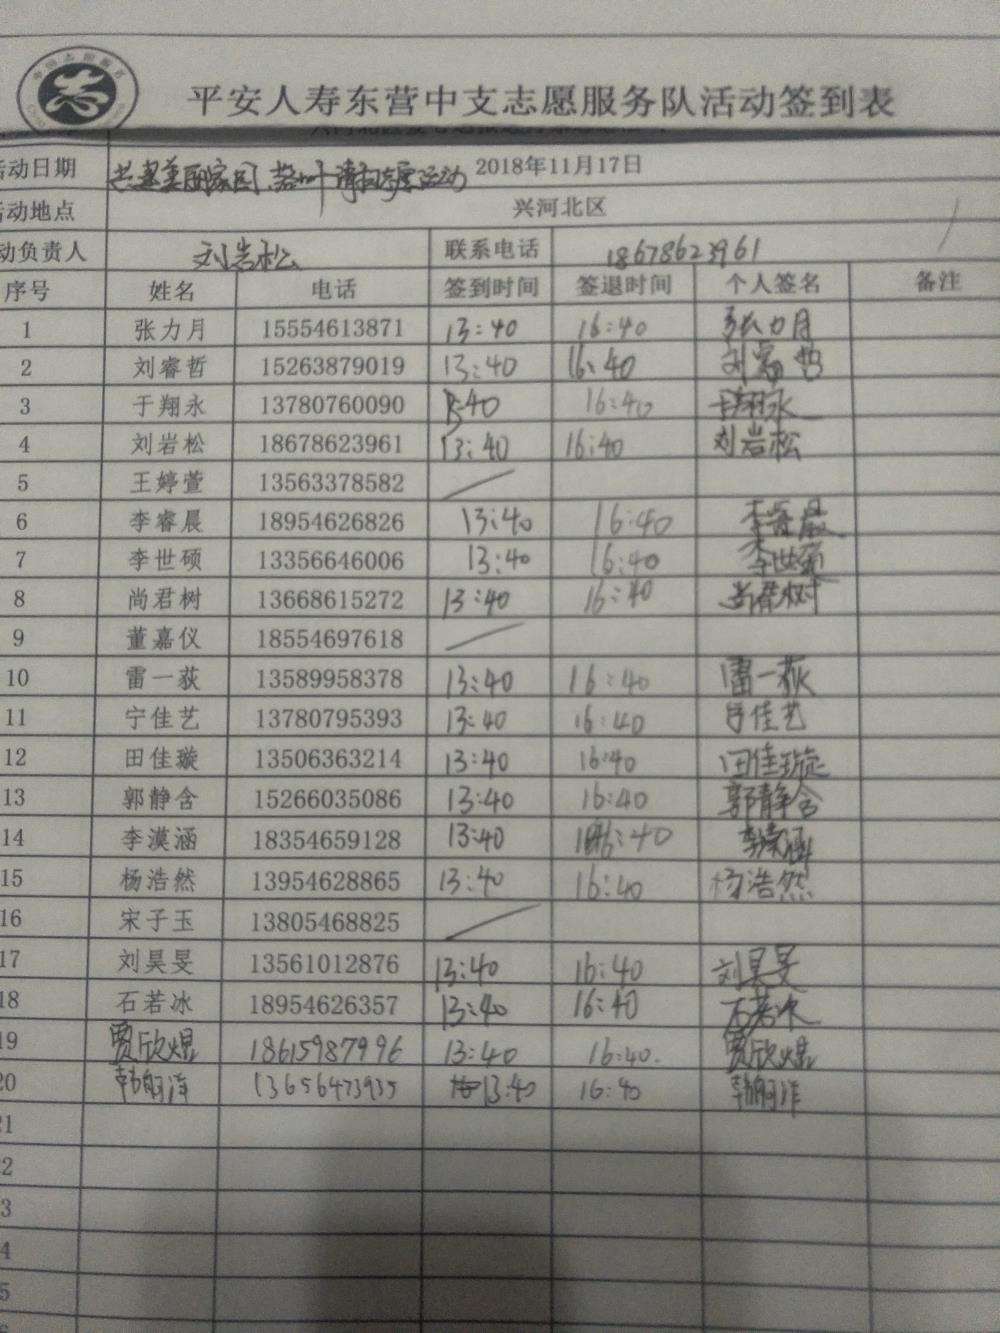 平安人寿东营中支志愿服务队活动签到表
活动日期 共建美丽家园、落叶清扫志愿活动 2018年11月17日
活动地点 兴河北区
动负责人 刘岩松 联系电话 18678623961
序号 姓名 电话 签到时间 签退时间 个人签名 备注
1 张力月 15554613871 13:40 16:40 张力月
2 刘睿哲 15263879019 13:40 16:40 刘睿哲
3 于翔永 13780760090 13:40 16:40 于翔永
4 刘岩松 18678623961 13:40 16:40 刘岩松
5 王婷萱 13563378582
6 李睿晨 18954626826 13:40 16:40 李睿晨
7 李世硕 13356646006 13:40 16:40 李世硕
8 尚君树 13668615272 13:40 16:40 尚君树
9 董嘉仪 18554697618
10 雷一荻 13589958378 13:40 16:40 雷一荻
11 宁佳艺 13780795393 13:40 16:40 宁佳艺
12 田佳璇 13506363214 13:40 16:40 田佳璇
13 郭静含 15266035086 13:40 16:40 郭静含
14 李漠涵 18354659128 13:40 16:40 李漠涵
15 杨浩然 13954628865 13:40 16:40 杨浩然
16 宋子玉 13805468825
17 刘昊旻 13561012876 13:40 16:40 刘昊旻
18 石若冰 18954626357 13:40 16:40 石若冰
19 贾欣煜 18615987996 13:40 16:40. 贾欣煜
20 13656473935 13:40 16:40
21
22
3
4
5